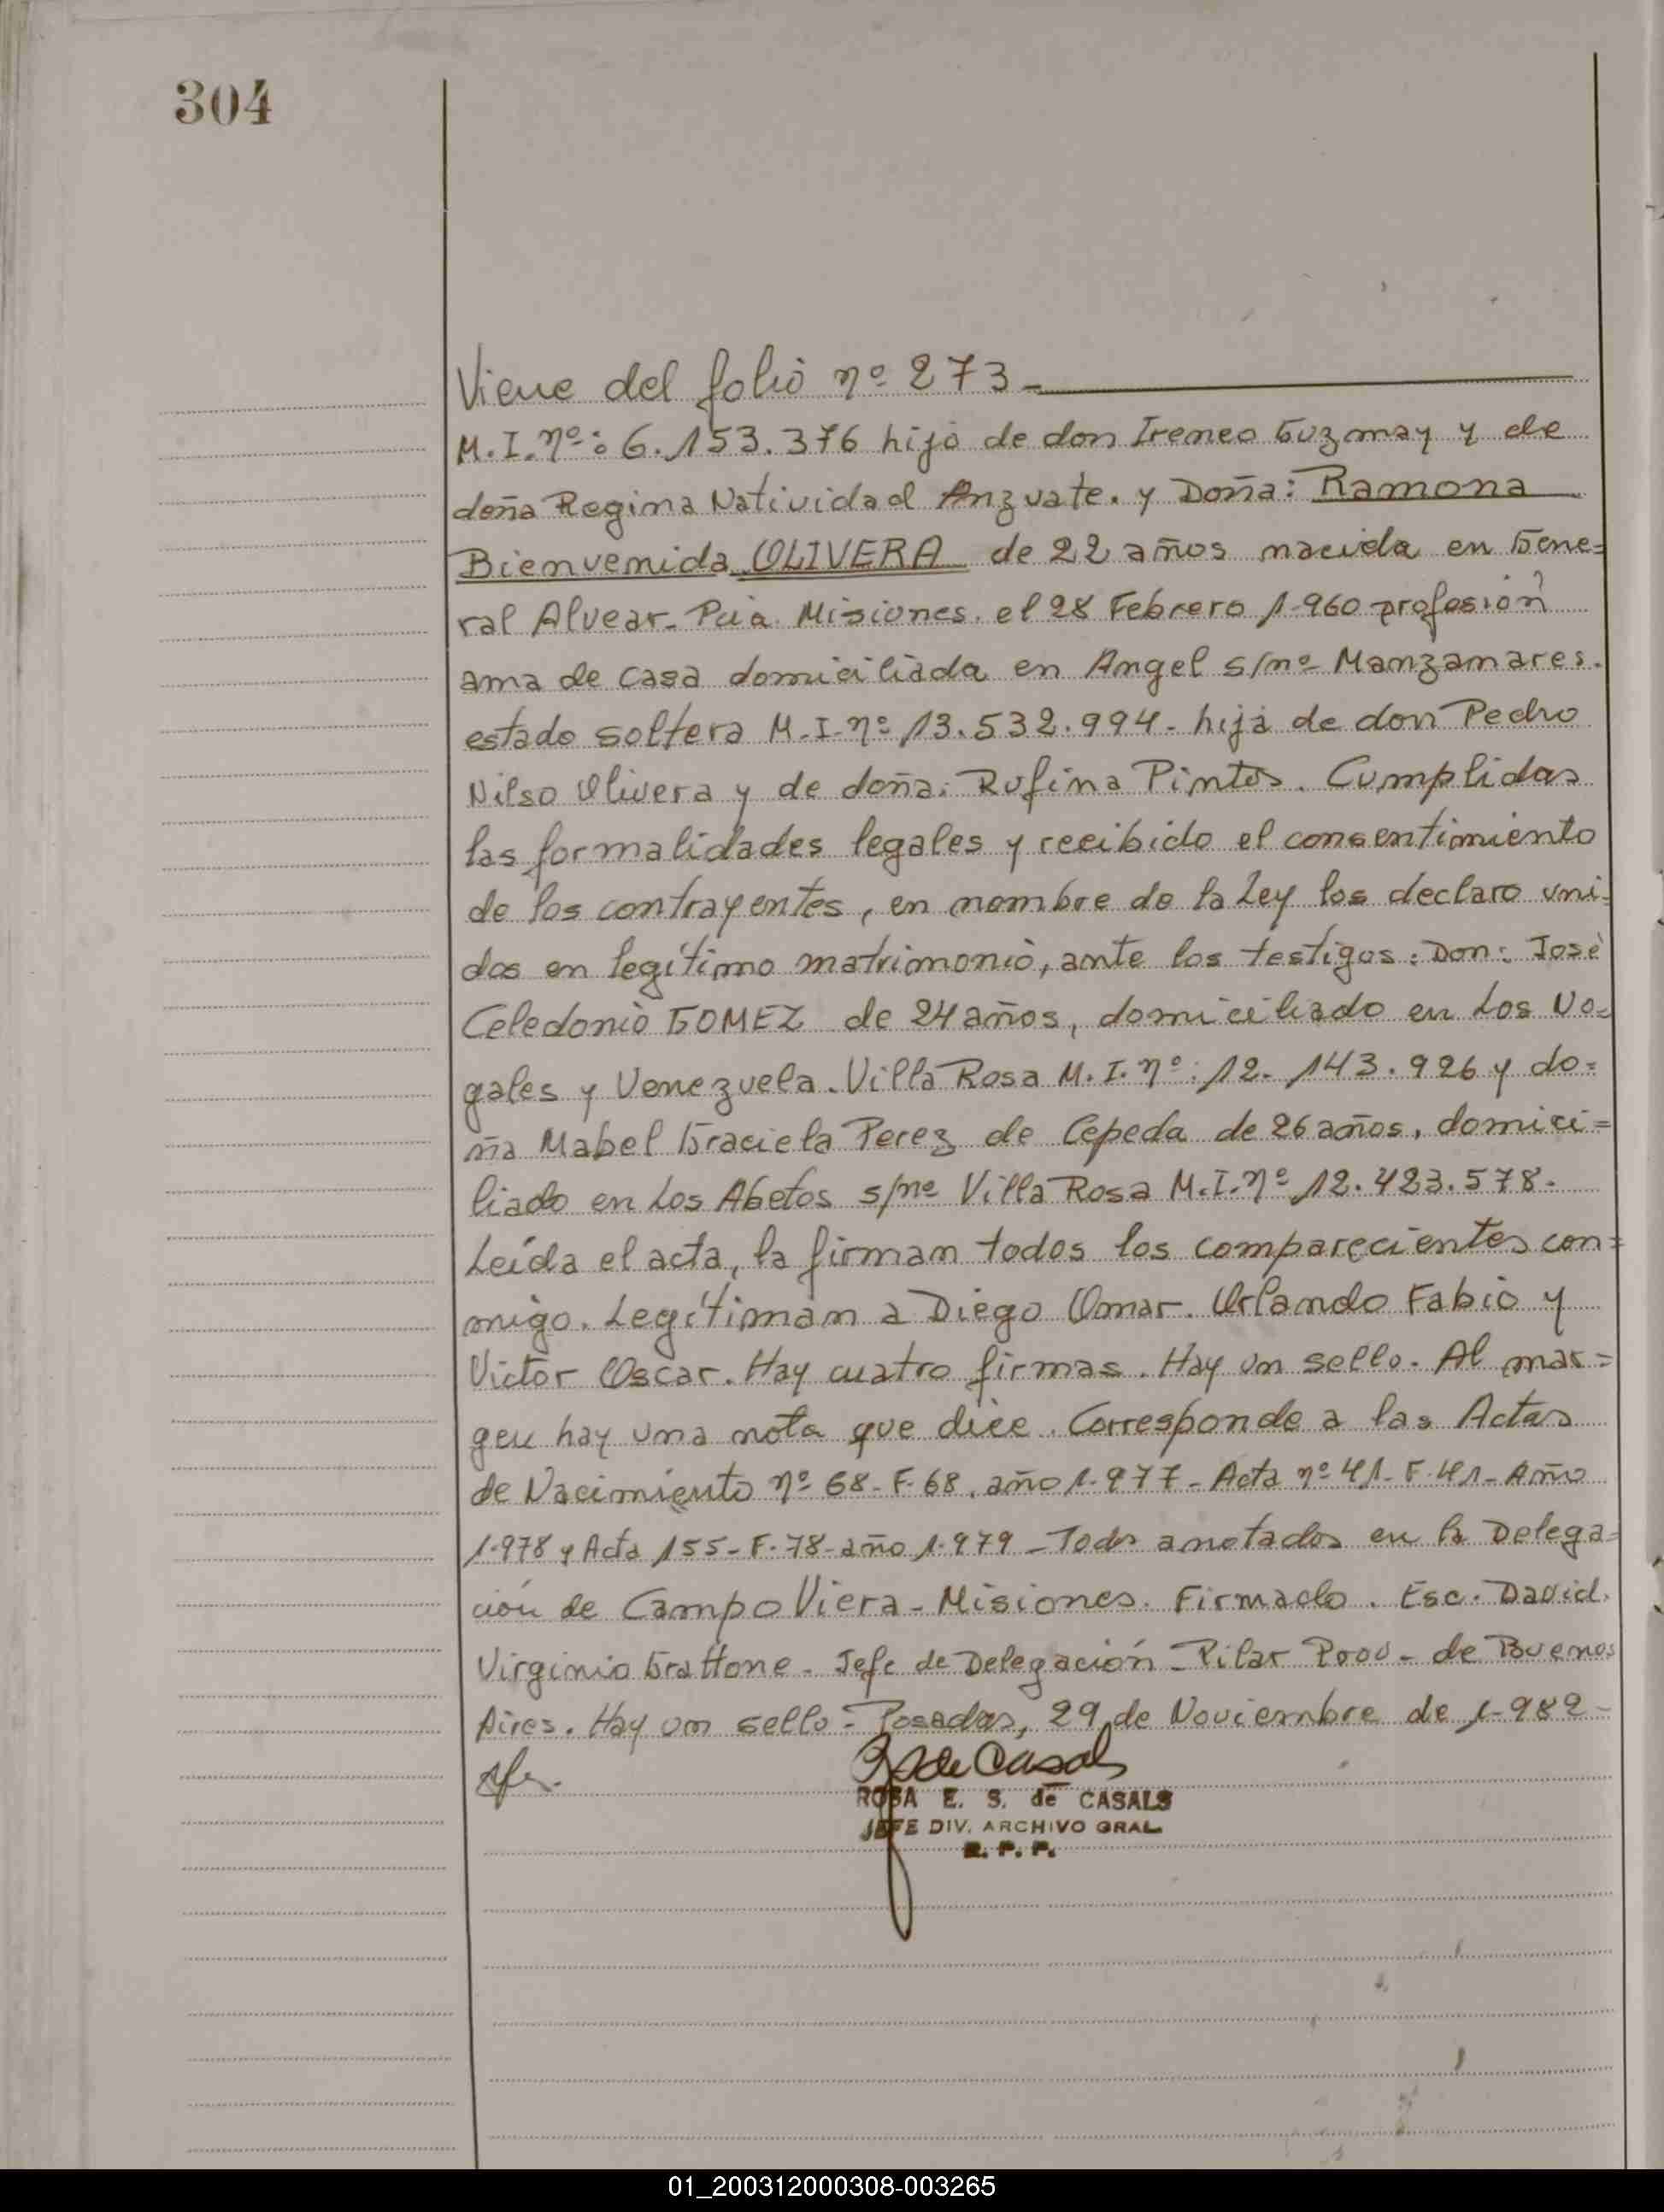 304
Viene del folio nº 273-
M.I.nº: 6.153.376 hijo de don Ireneo Guzmay y de
doña Regina Natividad Anzuate. y Doña: Ramona
Bienvenida OLIVERA de 22 años nacida en Gene=
ral Alvear- Pcia. Misiones. el 28 Febrero 1.960 profesión
ama de casa domiciliada en Angel s/nº Manzanares.
estado soltera M.I.nº 13.532.994- hija de don Pedro
Nilso Olivera y de doña: Rufina Pintos. Cumplidas
las formalidades legales y recibido el consentimiento
de los contrayentes, en nombre de la Ley los declaro uni=
dos en legítimo matrimonio, ante los testigos: Don: José
Celedonio GOMEZ de 24 años, domiciliado en Los No=
gales y Venezuela. Villa Rosa M.I.nº: 12.143.926 y do=
ña Mabel Graciela Perez de Cepeda de 26 años, domici=
liado en Los Abetos s/nº Villa Rosa M.I.nº 12.423.578.
Leída el acta, la firman todos los comparecientes con=
migo. Legítiman a Diego Omar. Orlando Fabio y
Victor Oscar. Hay cuatro firmas. Hay un sello. Al mar=
gen hay una nota que dice. Corresponde a las Actas
de Nacimiento nº 68- F. 68. año 1.977- Acta nº 41- F. 41- Año
1.978 y Acta 155- F. 78- año 1.979- Todos anotados en la Delega=
ción de Campo Viera- Misiones. Firmado. Esc. David.
Virginio Grattone- Jefe de Delegación- Pilar Prov- de Buenos
Aires. Hay un sello- Posadas, 29 de Noviembre de 1.982-
R de Casals
ROSA E. S. de CASALS
JEFE DIV. ARCHIVO GRAL
R. P. P.
01_200312000308-003265